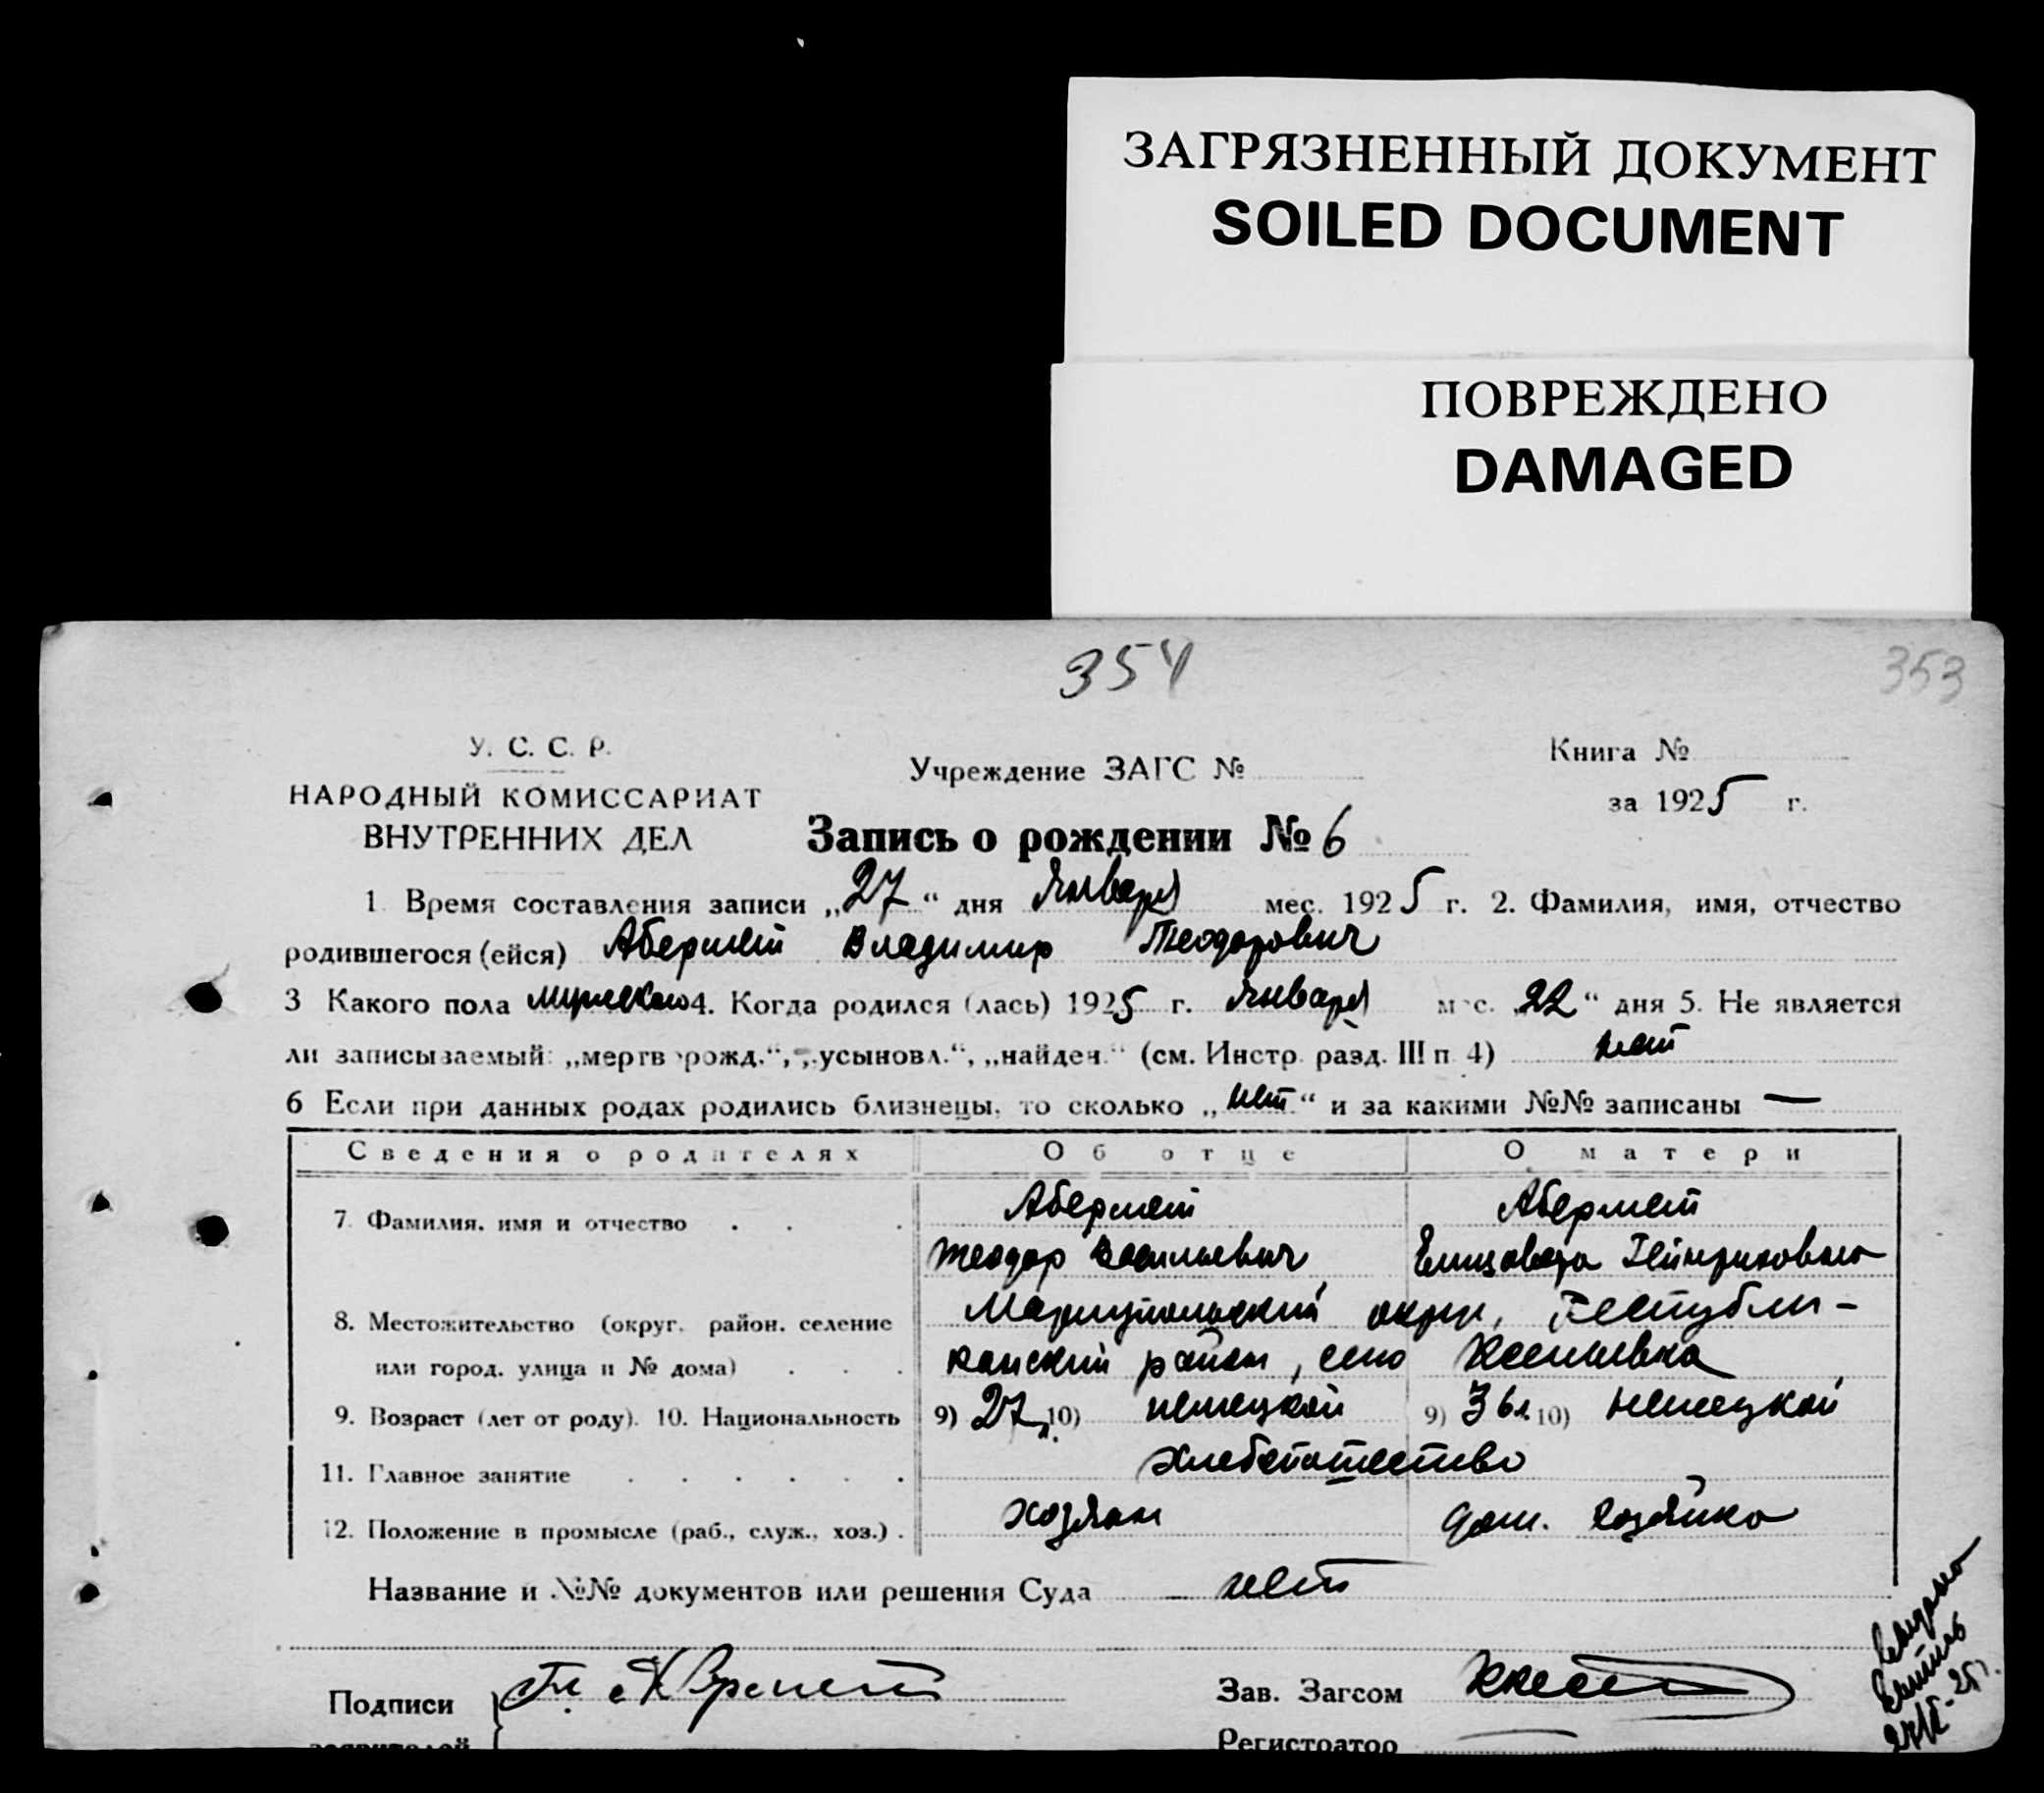 ЗАГРЯЗНЕННЫЙ ДОКУМЕНТ
SOILED DOCUMENT
ПОВРЕЖДЕНО
DAMAGED
354 353
У. С. С. Р.
НАРОДНЫЙ КОМИССАРИАТ
ВНУТРЕННИХ ДЕЛ
Учреждение ЗАГС №
Книга №
за 1925 г.
Запись о рождении № 6
1 Время составления записи „27“ дня Января мес. 1925 г. 2. Фамилия, имя, отчество
родившегося (ейся) Абермет Владимир Теодорович
3 Какого пола мужского 4. Когда родился (лась) 1925 г. Января мес. „22“ дня 5. Не является
ли записываемый: „мертворожд.“, „усыновл.“, „найден.“ (см. Инстр. разд. III п. 4) нет
6 Если при данных родах родились близнецы, то сколько „нет“ и за какими №№ записаны —
Сведения о родителях Об отце О матери
7. Фамилия, имя и отчество . . . Абермет Абермет
Теодор Васильевич Елизавета Гейнриховна
8. Местожительство (округ, район, селение Мариупольский округ, Республи-
или город, улица и № дома) . . . канский район, село
9. Возраст (лет от роду). 10. Национальность 9) 27 л. 10) немецкой 9) 36 л. 10) немецкой
11. Главное занятие . . . . . . хлебопашество
12. Положение в промысле (раб., служ., хоз.) . хозяин дом. хозяйка
Название и №№ документов или решения Суда нет
Подписи
заявителей
Зав. Загсом
Регистратор